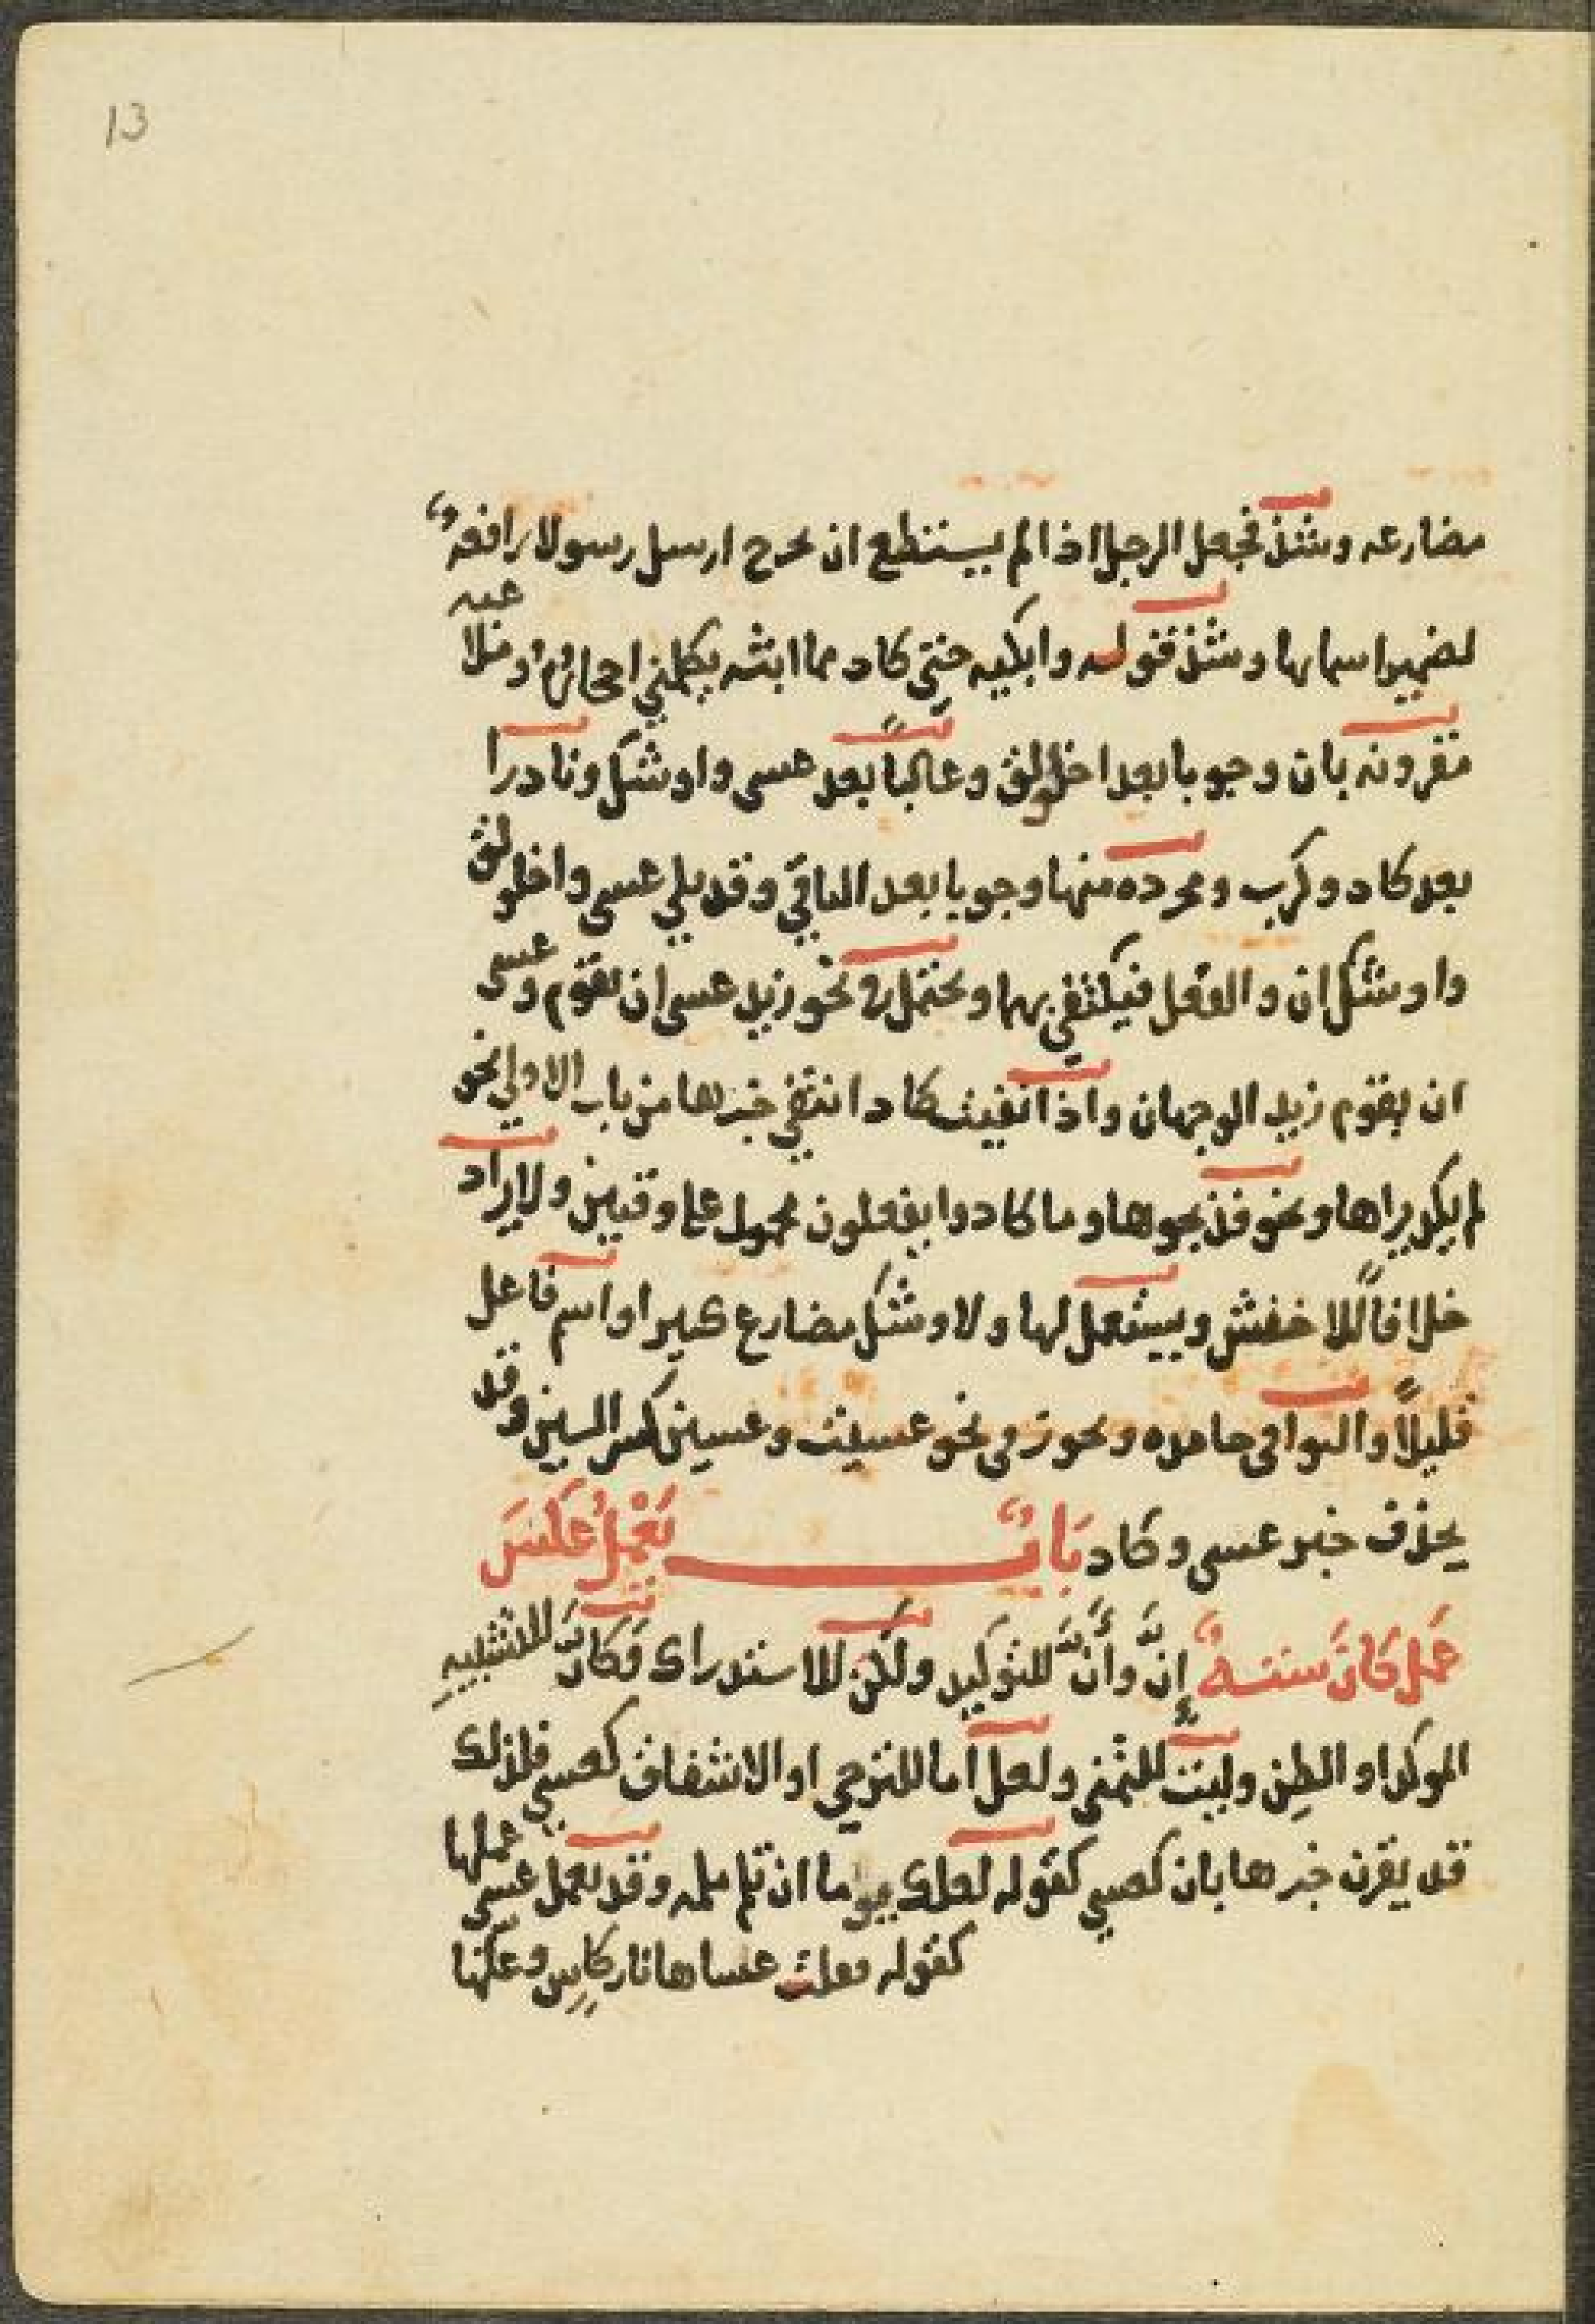 13
مضارعه وشذ فجعل الرجل اذا لم يستطع ان يخرج ارسل رسولا رافعةٌ
لضمير اسمائها وشذ قوله وابكيه حتى كاد مما ابثه يكلمني احجاره وملاعبه
مقرونه بان وجوبا بعد اخلولق وغالبًا بعد عسى واوشك ونادرا
بعد كاد وكرب ومجرده منها وجوبا بعد الباقي وقد يلي عسى واخلولق
واوشك ان والفعل فيكتفى بهما ويحتمل في نحو زيد عسى ان يقوم وعسى
ان يقوم زيد الوجهان واذا نفيت كاد انتفى خبرها من باب الاولى نحو
لم يكد يراها ونحو فذبحوها وما كادوا يفعلون محمول على وقتين ولا يراد
خلافًا للاخفش ويستعمل لها ولاوشك مضارع كثيرا واسم فاعل
قليلًا والبواقي جامده ويجوز في نحو عسيت وعسين كسر السين وقد
يحذف خبر عسى وكاد بَابٌ يَعْمَلُ عَكْسَ
عَمَلِ كَانَ سِتَّةٌ إِنَّ وأَنَّ للتوكيد ولكن للاستدراك وَكَانَّ للتشبيه
الموكد او الظن وليت للتمني ولعل اما للترجي او الاشفاق كعسى فلذلك
قد يقرن خبرها بان كعسى كقوله لعلك يوما ان تلم ملمه وقد يعمل عسى عملها
كقوله فقلت عساها نار كاس وعلها